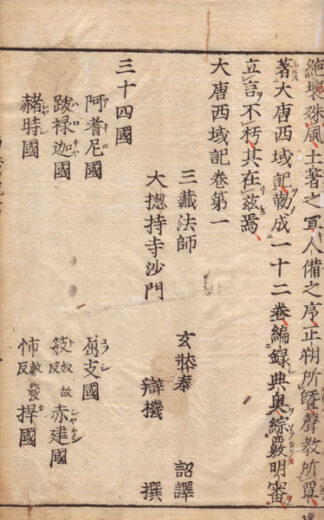 絶壤殊風土著之冝人備之序正朔所曁聲教所單
著大唐西域記勒成一十二卷編録典奥綜覈明審
立言不朽其在茲焉
大唐西域記卷第一
三藏法師　玄奘奉　詔譯
大揔持寺沙門　辯機　撰
三十四國
阿耆尼國　屈支國
跋禄迦國　笯奴故反赤建國
赭時國　㤄敷發反捍國